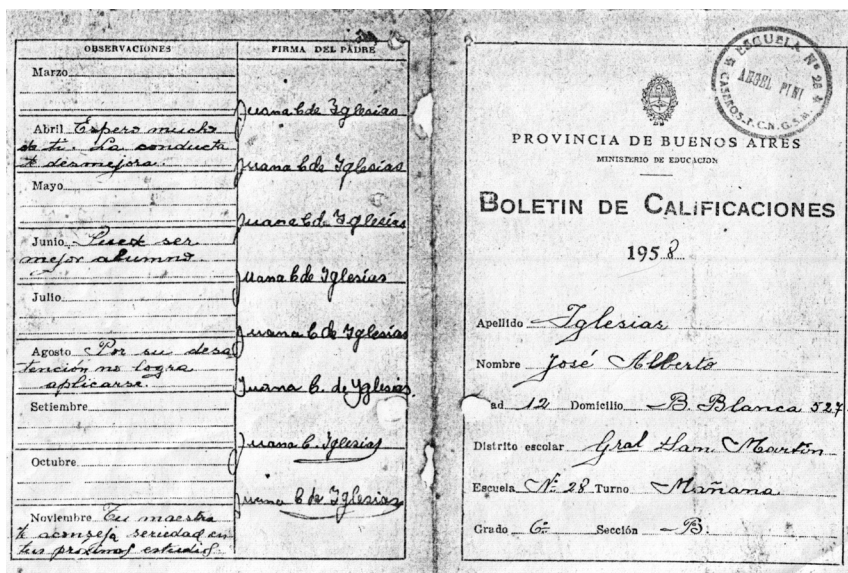 OBSERVACIONES
FIRMA DEL PADRE
Marzo
Juana C de Iglesias
Abril Espero mucho
de ti. La conducta
te desmejora.
Juana C de Iglesias
Mayo
Juana C de Iglesias
Junio Puedes ser
mejor alumno
Juana C de Iglesias
Julio
Juana C de Iglesias
Agosto Por su desa
tención no logra
aplicarse.
Juana C. de Yglesias.
Setiembre
Juana C. Iglesias
Octubre
Juana C de Iglesias
Noviembre Tu maestra
te aconseja seriedad en
tus proximos estudios.
ESCUELA Nº 28
ANGEL PINI
CASEROS-F.C.N.G.S.M.
PROVINCIA DE BUENOS AIRES
MINISTERIO DE EDUCACION
BOLETIN DE CALIFICACIONES
1958
Apellido Iglesias
Nombre José Alberto
ad 12 Domicilio B. Blanca 527
Distrito escolar Gral San Martín
Escuela Nº 28 Turno Mañana
Grado 6º Sección B.